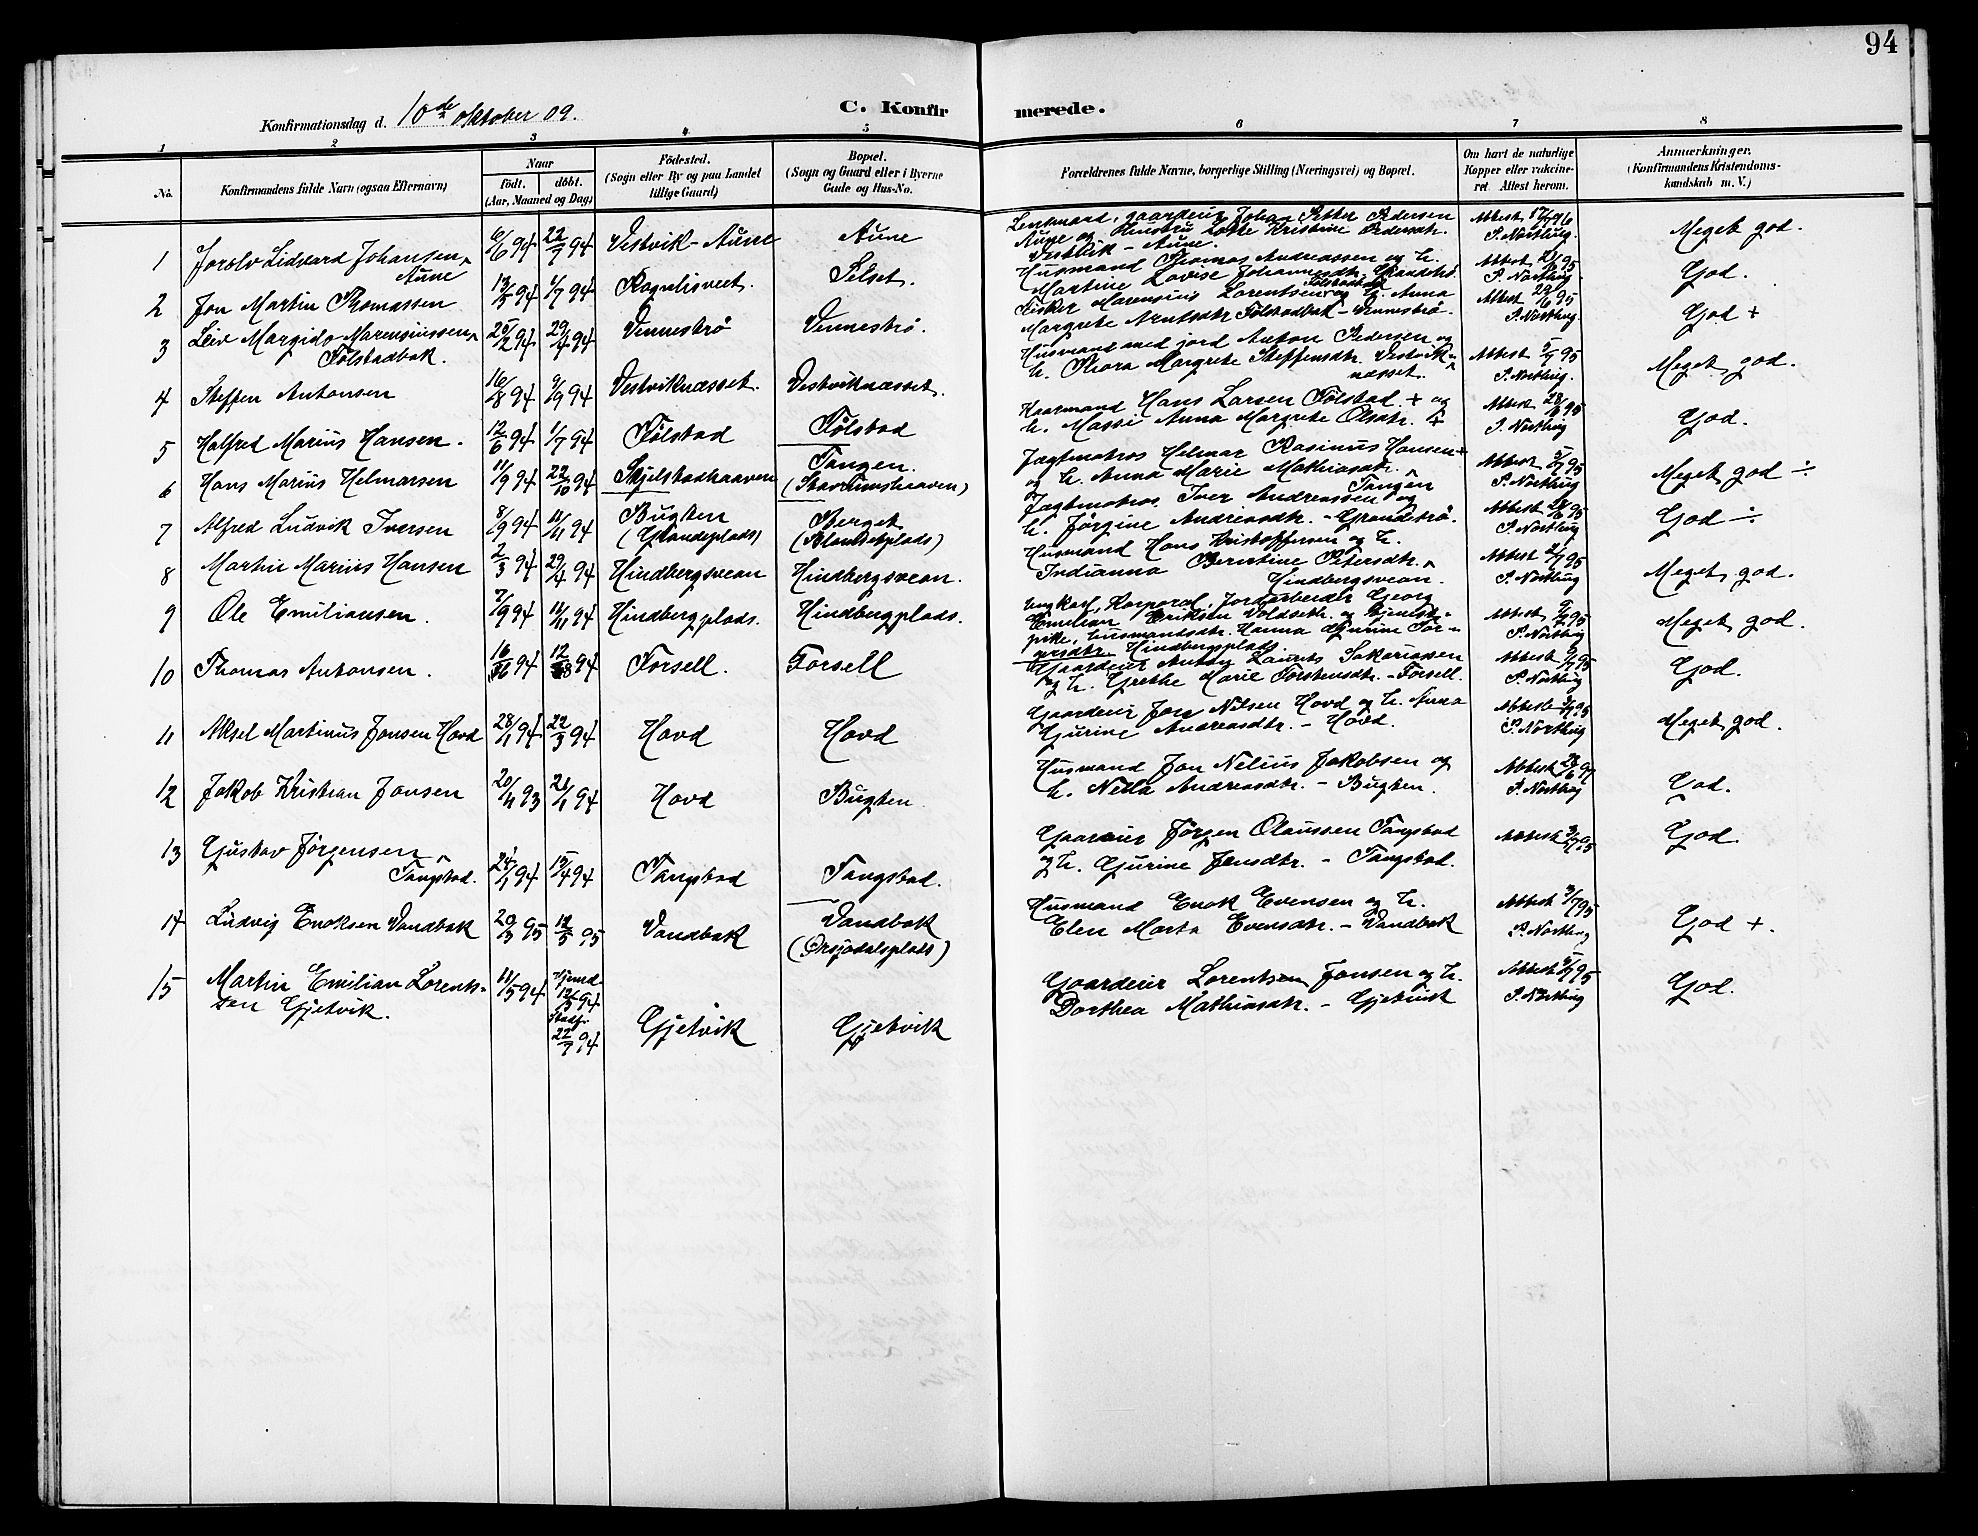 94
Konfirmationsdag d. 10de oktober 09.
C. Konfirmerede.
1 2 3 4 5 6 7 8
No.
Konfirmandens fulde Navn (ogsaa Efternavn)
Naar
födt. döbt.
(Aar, Maaned og Dag)
Födested.
(Sogn eller By og paa Landet
tillige Gaard)
Bopæl.
(Sogn og Gaard eller i Byerne
Gade og Hus-No.
Forældrenes fulde Navne, borgerlige Stilling (Næringsvei) og Bopæl.
Om havt de naturlige
Kopper eller vakcine-
ret. Attest herom.
Anmærkninger.
(Konfirmandens Kristendoms-
kundskab m. V.)
1 Jorolv Lidvard Johansen Aune 6/6 94 22/7 94 Vestvik-Aune Aune
Lensmand, gaardeier Johan Petter Pedersen
Aune og Hustru Lotte Kristine Pedersdtr.
Vestvik - Aune.
Attest 17/7 96
P. Northug.
Meget god.
2 Jon Martin Thomassen 13/5 94 1/7 94 Selset.
Husmand Thomas Andreassen og h.
Martine Lovise Johannesdtr.
Attest 95
P. Northug
God.
3 Leiv Margido Marensiussen
Følstadbak. 25/2 94 29/4 94 Vennestrø Vennestrø.
Fisker Marensius Lorentsen Følstadbak og h. Anna
Margrete Arntsdtr. Følstadbak - Vennestrø.
Attest 29/6 95
P. Northug.
God +
4 Steffen Antonsen 16/8 94 9/9 94 Vestviknæsset. Vestviknæsset.
Husmand med jord Anton Pedersen og
h. Thora Margrete Steffensdtr. Vestvik-
næsset.
Attest 5/7 95
P. Northug.
Meget god.
5 Halfred Marius Hansen. 12/6 94 1/7 94 Følstad Følstad
Kaarmand Hans Larsen Følstad. + og
h. Massi Anna Margrete Olsdtr. +
Attest 28/6 95
P. Northug
God.
6 Hans Marius Helmarsen 11/9 94 22/10 94 Skjelstadhaaven Tangen.
(Stavrumshaaven)
Jagtmatros Helmar Rasinus Hansen
og h. Anna Marie Mathiasdtr.
Tangen
Attest 5/7 95
P. Northug
Meget god ÷
7 Alfred Ludvik Iversen 8/9 94 11/11 94 Bugten
(Grandeplads) Berget
Jagtmatros Iver Andreassen og
h. Jørgine Andreasdtr. - Grandstrø.
Attest 28/6 95
P. Northug
God ÷
8 Martin Marius Hansen 2/3 94 29/4 94 Hindbergsvean Hindbergsvean.
Husmand Hans Kristoffersen og h.
Indianna Berntine Petersdtr.
Hindbergsvean.
Attest 2/7 95
P. Northug
Meget god.
9 Ole Emiliansen. 7/9 94 11/11 94 Hindbergplads. Hindbergplads.
Ungkarl, Korporal, Jordarbeider Georg
Emilian Eriksen Voldseth. og Tjeneste-
pike, husmandsdtr. Hanna Gurine Tor-
Hindbergplads.
Attest 95
P. Northug
Meget god.
10 Thomas Antonsen. 16/6 94 12/8 94 Forsell. Forsell
Gaardeier Anton Laurits Sakariassen
og h. Grethe Marie Torstensdtr. - Forsell.
Attest 95
P. Northug
God.
11 Aksel Martinus Jonsen Hovd 28/1 94 22/3 94 Hovd Hovd
Gaardeier Jon Nilsen Hovd og h. Anna
Gurine Andreasdtr. - Hovd.
Attest 95
P. Northug
Meget god.
12 Jakob Kristian Jonsen 20/11 93 21/1 94 Hovd Bugten
Husmand Jon Nelius Jakobsen og
h. Nella Andreasdtr. - Bugten.
Attest
P. Northug
God.
13 Gustav Jørgensen
Tangstad. 24/1 94 15/4 94 Tangstad Tangstad.
Gaardeier Jørgen Olaussen Tangstad
og h. Gjurine Jensdtr. - Tangstad.
Attest 3/7 95
God.
14 Ludvig Enoksen Vandbak 20/3 95 12/5 95 Vandbak Vandbak
(Orsjødalsplads)
Husmand Enok Evensen og h.
Elen Marta Evensdtr. - Vandbak
Attest 3/7 95
P. Northug
God +.
15 Martin Emilian Lorent-
sen Gjetvik. 11/5 94 Hjemd. 12/5 94
Stadf.
22/7 94 Gjetvik Gjetvik
Gaardeier Lorentsen Jonsen og h.
Dorthea Mathiasdtr. - Gjetvik
Attest 5/7 95
P. Northug
God.